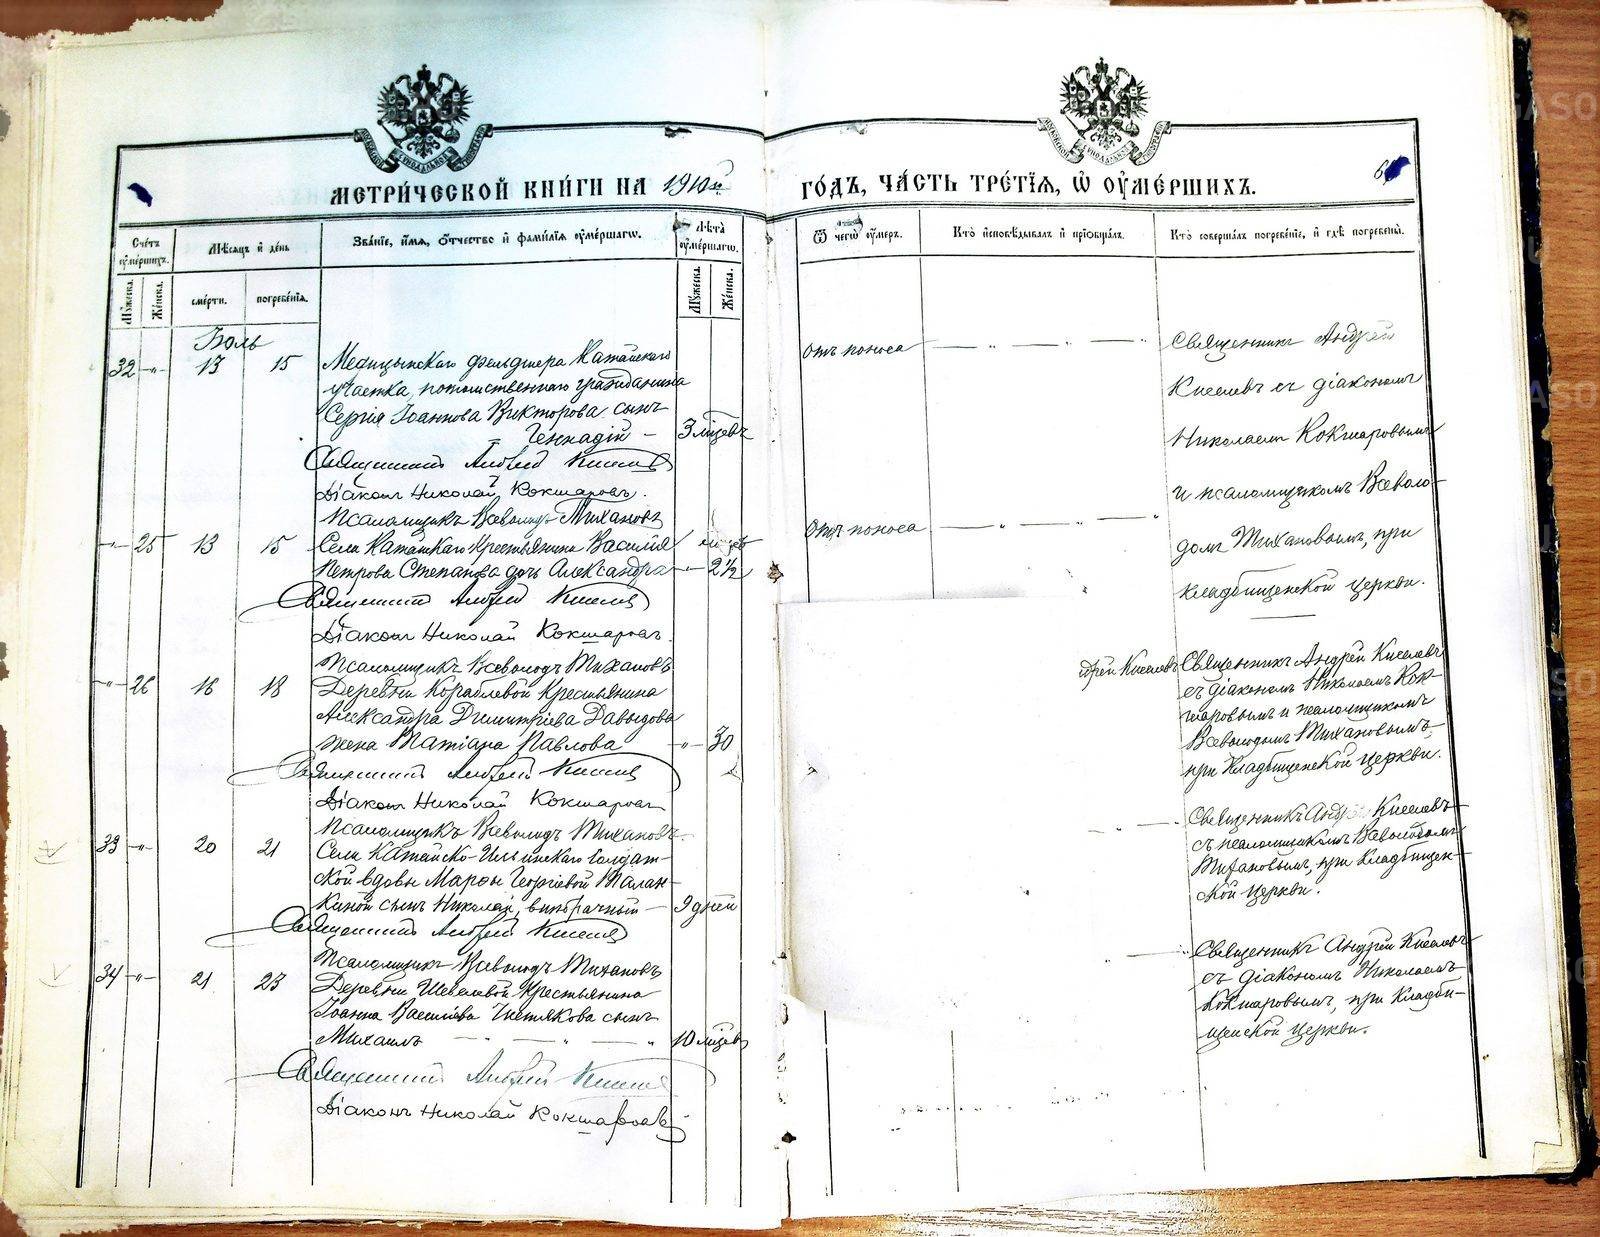 МЕТРИ́ЧЕСКОЙ КНИ́ГИ НА 1910й
ГО́ДЪ, ЧА́СТЬ ТРЕ́ТЇЯ, Ѡ҆ ОУ҆МЕ́РШИХЪ.
Сче́тъ оу҆ме́ршихъ.
Мѣ́сяцъ и҆ де́нь
Зва́нїе, и҆́мя, ѻ҆́тчество и҆ фами́лїя оу҆ме́ршагѡ.
Лѣ́та оу҆ме́ршагѡ.
Ѿ чегѡ̀ оу҆́меръ.
Кто̀ и҆сповѣ́дывалъ и҆ прїѡбща́лъ.
Кто̀ соверша́лъ погребе́нїе, и҆ гдѣ̀ погребены̀.
Мꙋ́жеска.
Же́нска.
сме́рти.
погребе́нїя.
Мꙋ́жеска.
Же́нска.
Іюль
32 -"- 13 15
Медицынскаго фельдшера Катайскаго
участка, потомственнаго гражданина
Сергія Іоаннова Викторова сынъ
Геннадій — 3 мѣсецъ
Священникъ Андрей Киселевъ
Діаконъ Николай Кокшаровъ.
Псаломщикъ Всеволодъ Тихановъ
Отъ поноса
Священникъ Андрей
Киселевъ съ діакономъ
Николаемъ Кокшаровымъ
и псаломщикомъ Всеволо-
домъ Тихановымъ, при
кладбищенской церкви.
-"- 25 13 15
Села Катайскаго Крестьянина Василія
Петрова Степанова дочь Александра -"- 2½
Священникъ Андрей Киселевъ
Діаконъ Николай Кокшаровъ.
Псаломщикъ Всеволодъ Тихановъ
Отъ поноса
-"- 26 16 18
Деревни Кораблевой Крестьянина
Александра Димитріева Давыдова
жена Татіана Павлова -"- 30
Священникъ Андрей Киселевъ
Діаконъ Николай Кокшаровъ
Псаломщикъ Всеволодъ Тихановъ
дрей Киселевъ
Священникъ Андрей Киселевъ
съ діакономъ Николаемъ Кок-
шаровымъ и псаломщикомъ
Всеволодомъ Тихановымъ,
при Кладбищенской церкви.
33 -"- 20 21
Села Катайско-Ильинскаго Солдат-
ской вдовы Марѳы Георгіевой Талан-
киной сынъ Николай, внѣбрачный — 9 дней
Священникъ Андрей Киселевъ
Псаломщикъ Всеволодъ Тихановъ
Священникъ Андрей Киселевъ
съ псаломщикомъ Всеволодомъ
Тихановымъ, при Кладбищен-
ской церкви.
34 -"- 21 23
Деревни Шевелевой Крестьянина
Іоанна Василіева Чистякова сынъ
Михаилъ 10 мѣсецъ
Священникъ Андрей Киселевъ
Діаконъ Николай Кокшаровъ
Священникъ Андрей Киселевъ
съ діакономъ Николаемъ
Кокшаровымъ, при Кладби-
щенской церкви.
GASO